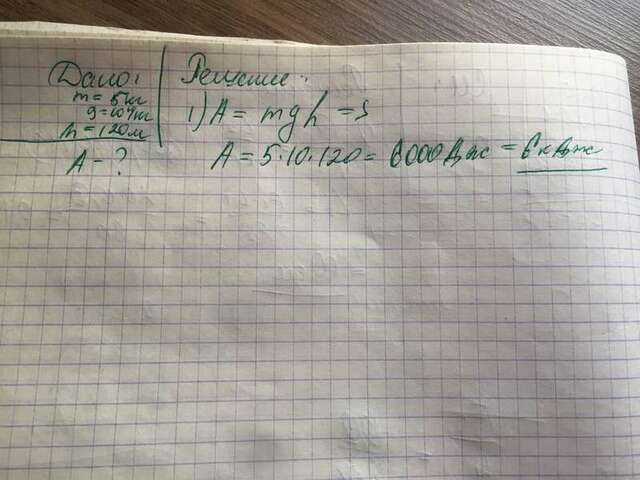 Дано:
m = 5 кг
g = 10 Н/кг
h = 120 м
A = ?
Решение:
1) A = mgh =>
A = 5·10·120 = 6000 Дж = 6 кДж